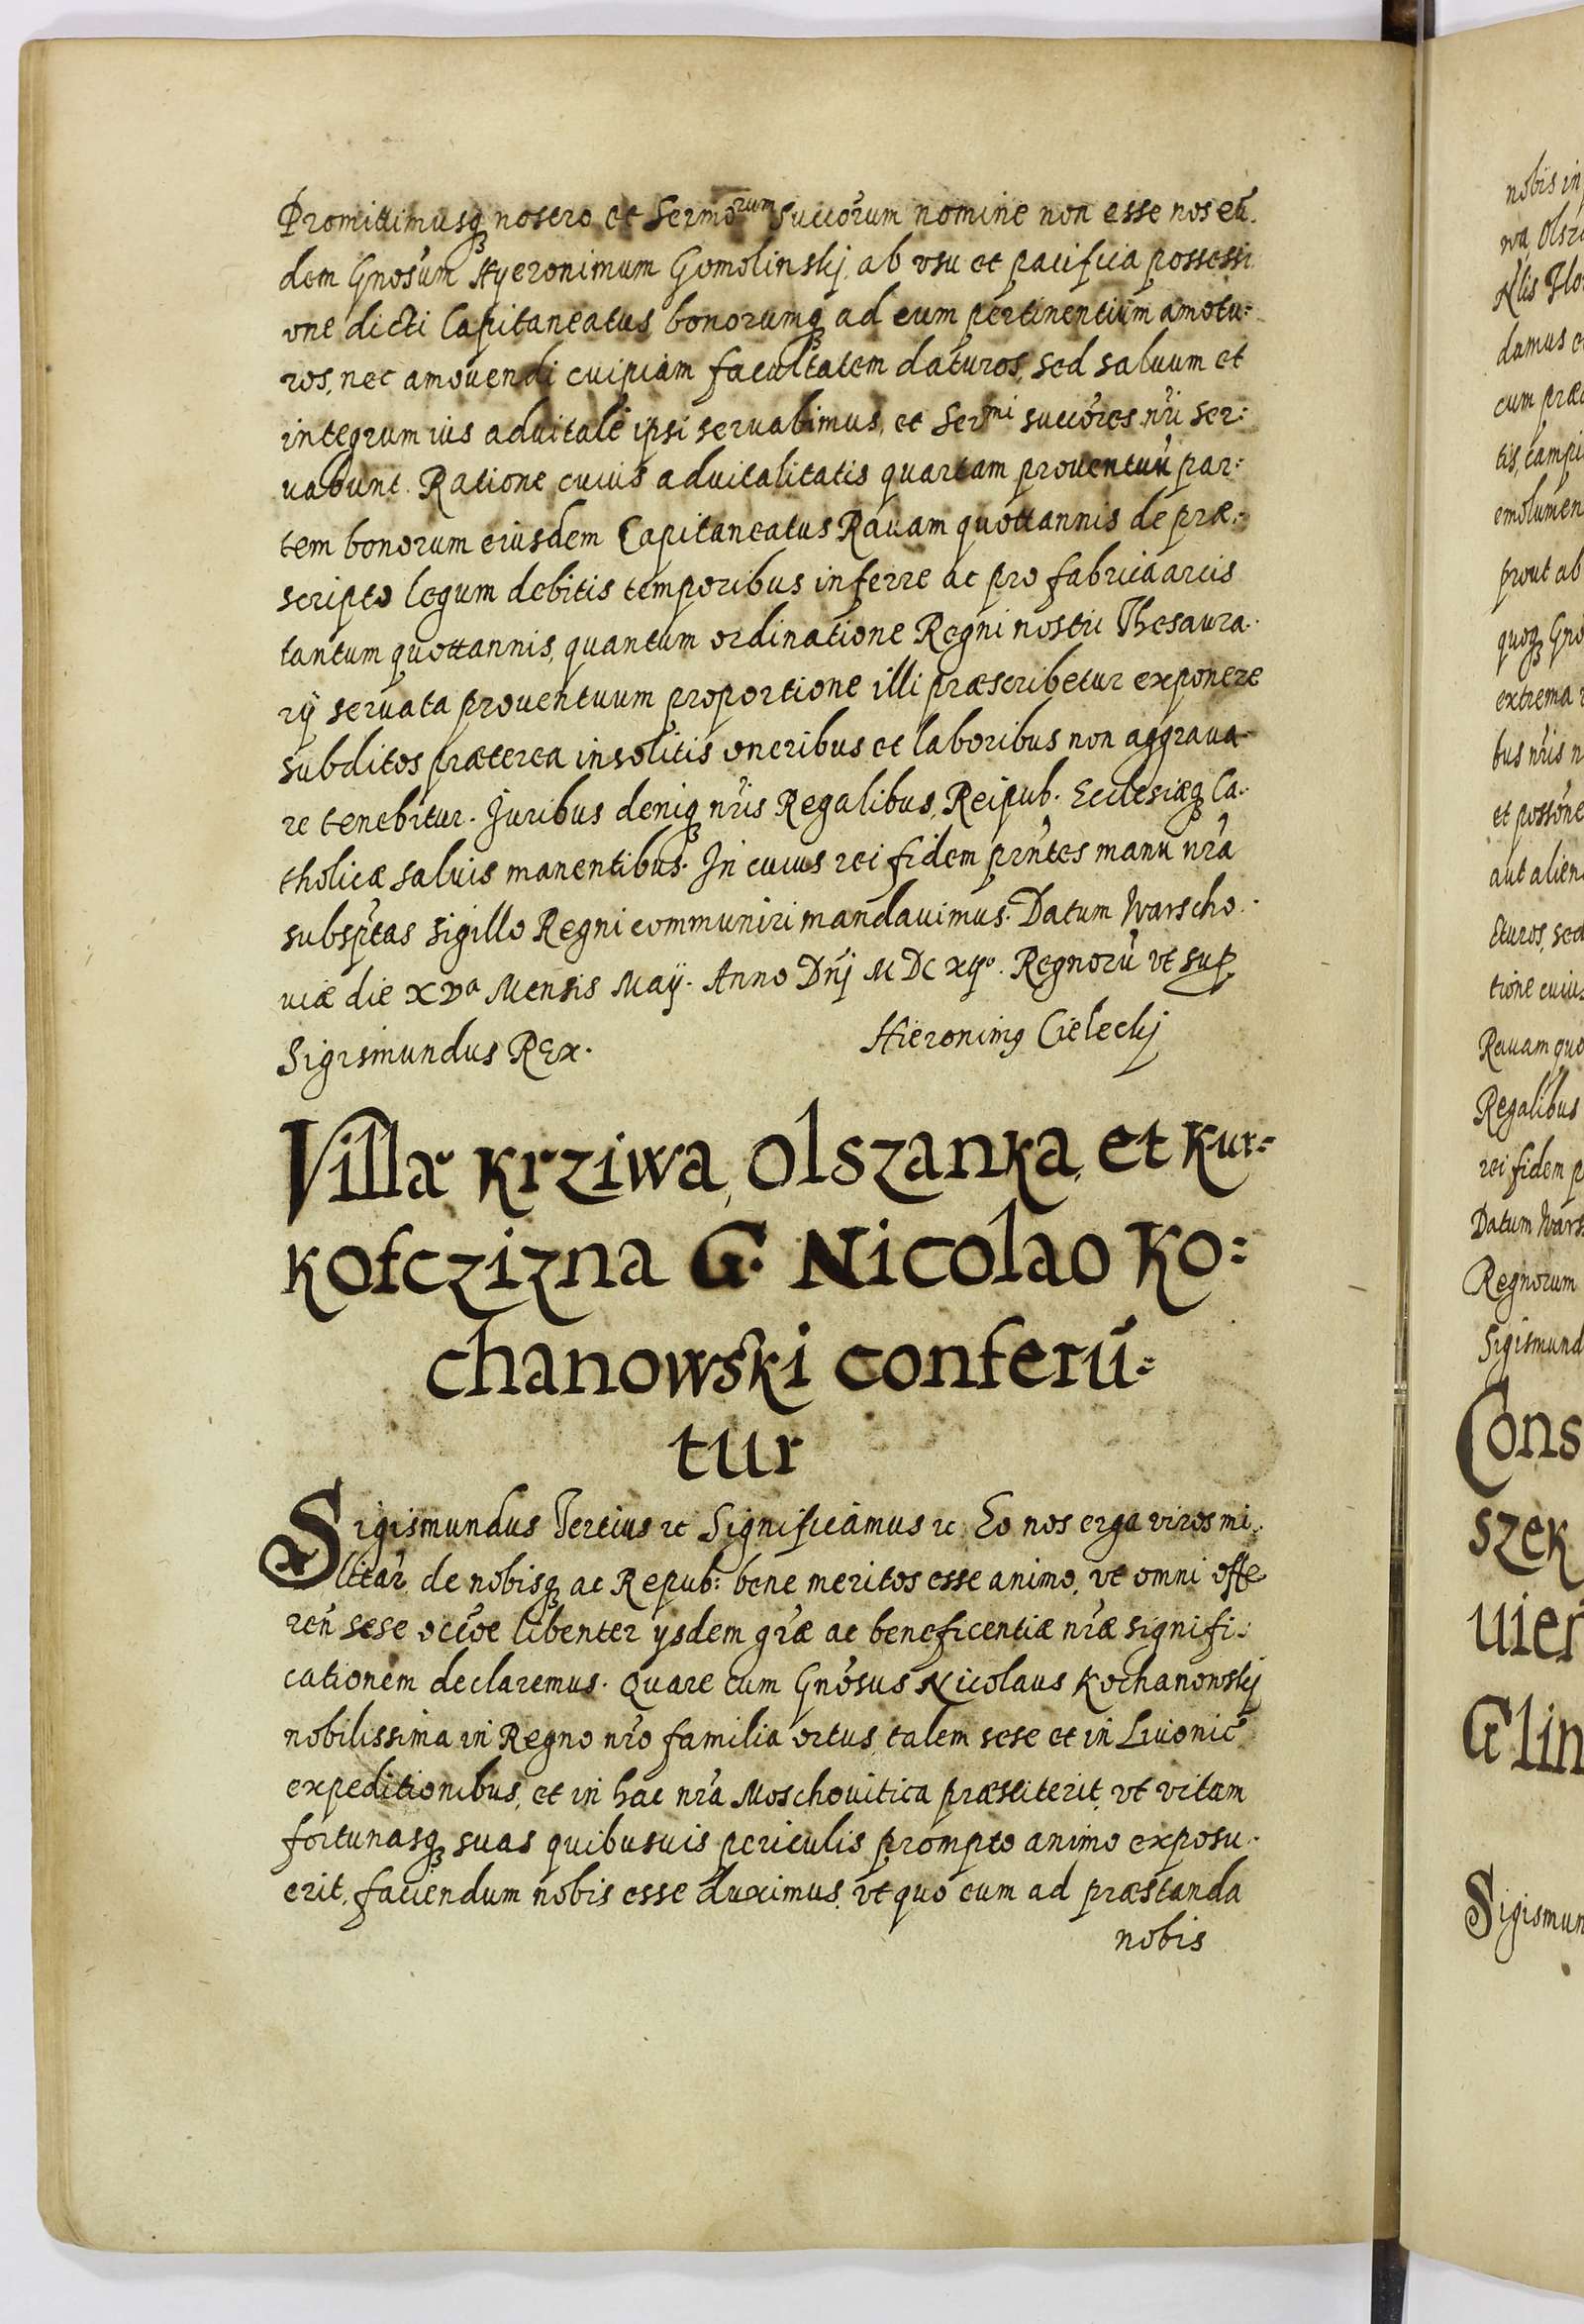 Promittimusq₃ nostro et Sermorum Succorum nomine non esse nos eū.
dem Gnosum Hyeronimum Gomolinskj, ab vsu et pacifica possessi
one dicti Capitaneatus bonorumq₃ ad eum pertinentium amotu=
ros, nec amouendi cuipiam facultatem daturos, sed saluum et
integrum ius aduitale ipsi seruabimus, et Sermi succores nri ser:
uabunt. Ratione cuius aduitalitatis quartam prouentuū par:
tem bonorum eiusdem Capitaneatus Rauam quottannis de præ:
scripto legum debitis temporibus inferre ac pro fabrica arcis
tantum quottannis, quantum ordinatione Regni nostri Thesaura.
rÿ seruata prouentuum proportione illi præscribetur exponere
subditos præterea insolitis oneribus et laboribus non aggraua
re tenebitur. Juribus deniq₃ nris Regalibus, Reipub. Ecclesiæq₃ Ca.
tholicæ saluis manentibus. In cuius rei fidem prntes manu nra
subsptas Sigillo Regni communiri mandauimus. Datum Warscho.
uiæ die XVa Mensis Maÿ. Anno Dnj M DC xijo. Regnorū vt sup
Sigismundus Rex. Hieronimg Cieleckj
Villæ Krziwa, Olszanka, et Kur=
kofczizna G. Nicolao Ko=
chanowski conferū=
tur
Sigismundus Tertius rc Significamus rc. Eo nos erga viros mi.
litar, de nobisq₃ ac Repub: bene meritos esse animo, vt omni offe
ren sese occoe libenter ysdem græ ac beneficentiæ nræ signifi:
cationem declaremus. Quare cum Gnosus Nicolaus Kochanowskj
nobilissima in Regno nro familia ortus, talem sese et in Liuonic
expeditionibus, et in hac nra Moschouitica præstiterit, vt vitam
fortunasq₃ suas quibusuis periculis prompto animo exposu.
erit, faciendum nobis esse duximus, vt quo eum ad præstanda
nobis
nobis in
wa, Olsz
Nlis Flo
damus e
cum præ
tis, campi
emolumen
prout ab
quoq₃ Gno
extrema
bus nris n
et possone
aut alien
cturos, sed
tione cuius
Rauam quo
Regalibus
rei fidem p
Datum Wars
Regnorum
Sigismund
Cons
szek
uier
Glin
Sigismun